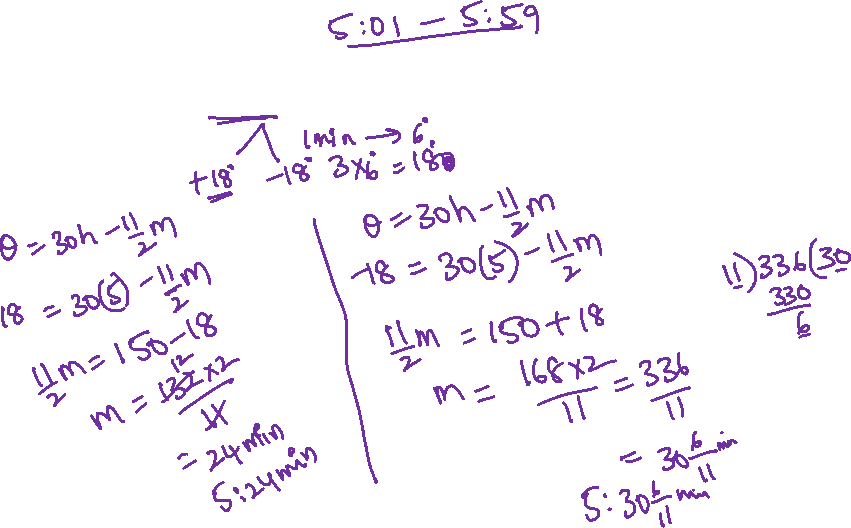 5:01 – 5:59
1min → 6°
+18° -18° 3×6° = 18°
θ = 30h - 11/2 m
18 = 30(5) - 11/2 m
11/2 m = 150 - 18
12
m = 132 × 2 / 11
= 24 min
5:24 min
θ = 30h - 11/2 m
-18 = 30(5) - 11/2 m
11/2 m = 150 + 18
m = 168×2 / 11 = 336 / 11
= 30 6/11 min
5: 30 6/11 min
11)336(30
330
6